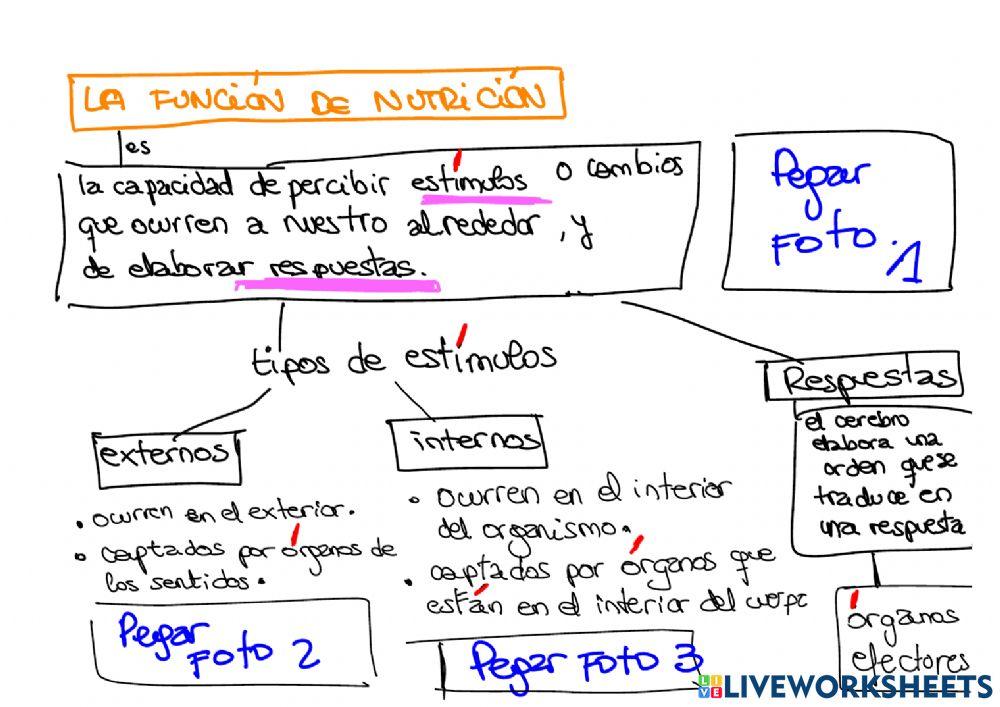 LA FUNCIÓN DE NUTRICIÓN
es
la capacidad de percibir estímulos o cambios
que ocurren a nuestro alrededor, y
de elaborar respuestas.
Pegar
FOTO.
1
tipos de estímulos
Respuestas
el cerebro
elabora una
orden que se
traduce en
una respuesta
órganos
efectores
externos
• ocurren en el exterior.
• captados por órganos de
los sentidos.
Pegar
FOTO 2
internos
• ocurren en el interior
del organismo.
• captados por órganos que
están en el interior del cuerpo
Pegar FOTO 3
LIVE
LIVEWORKSHEETS